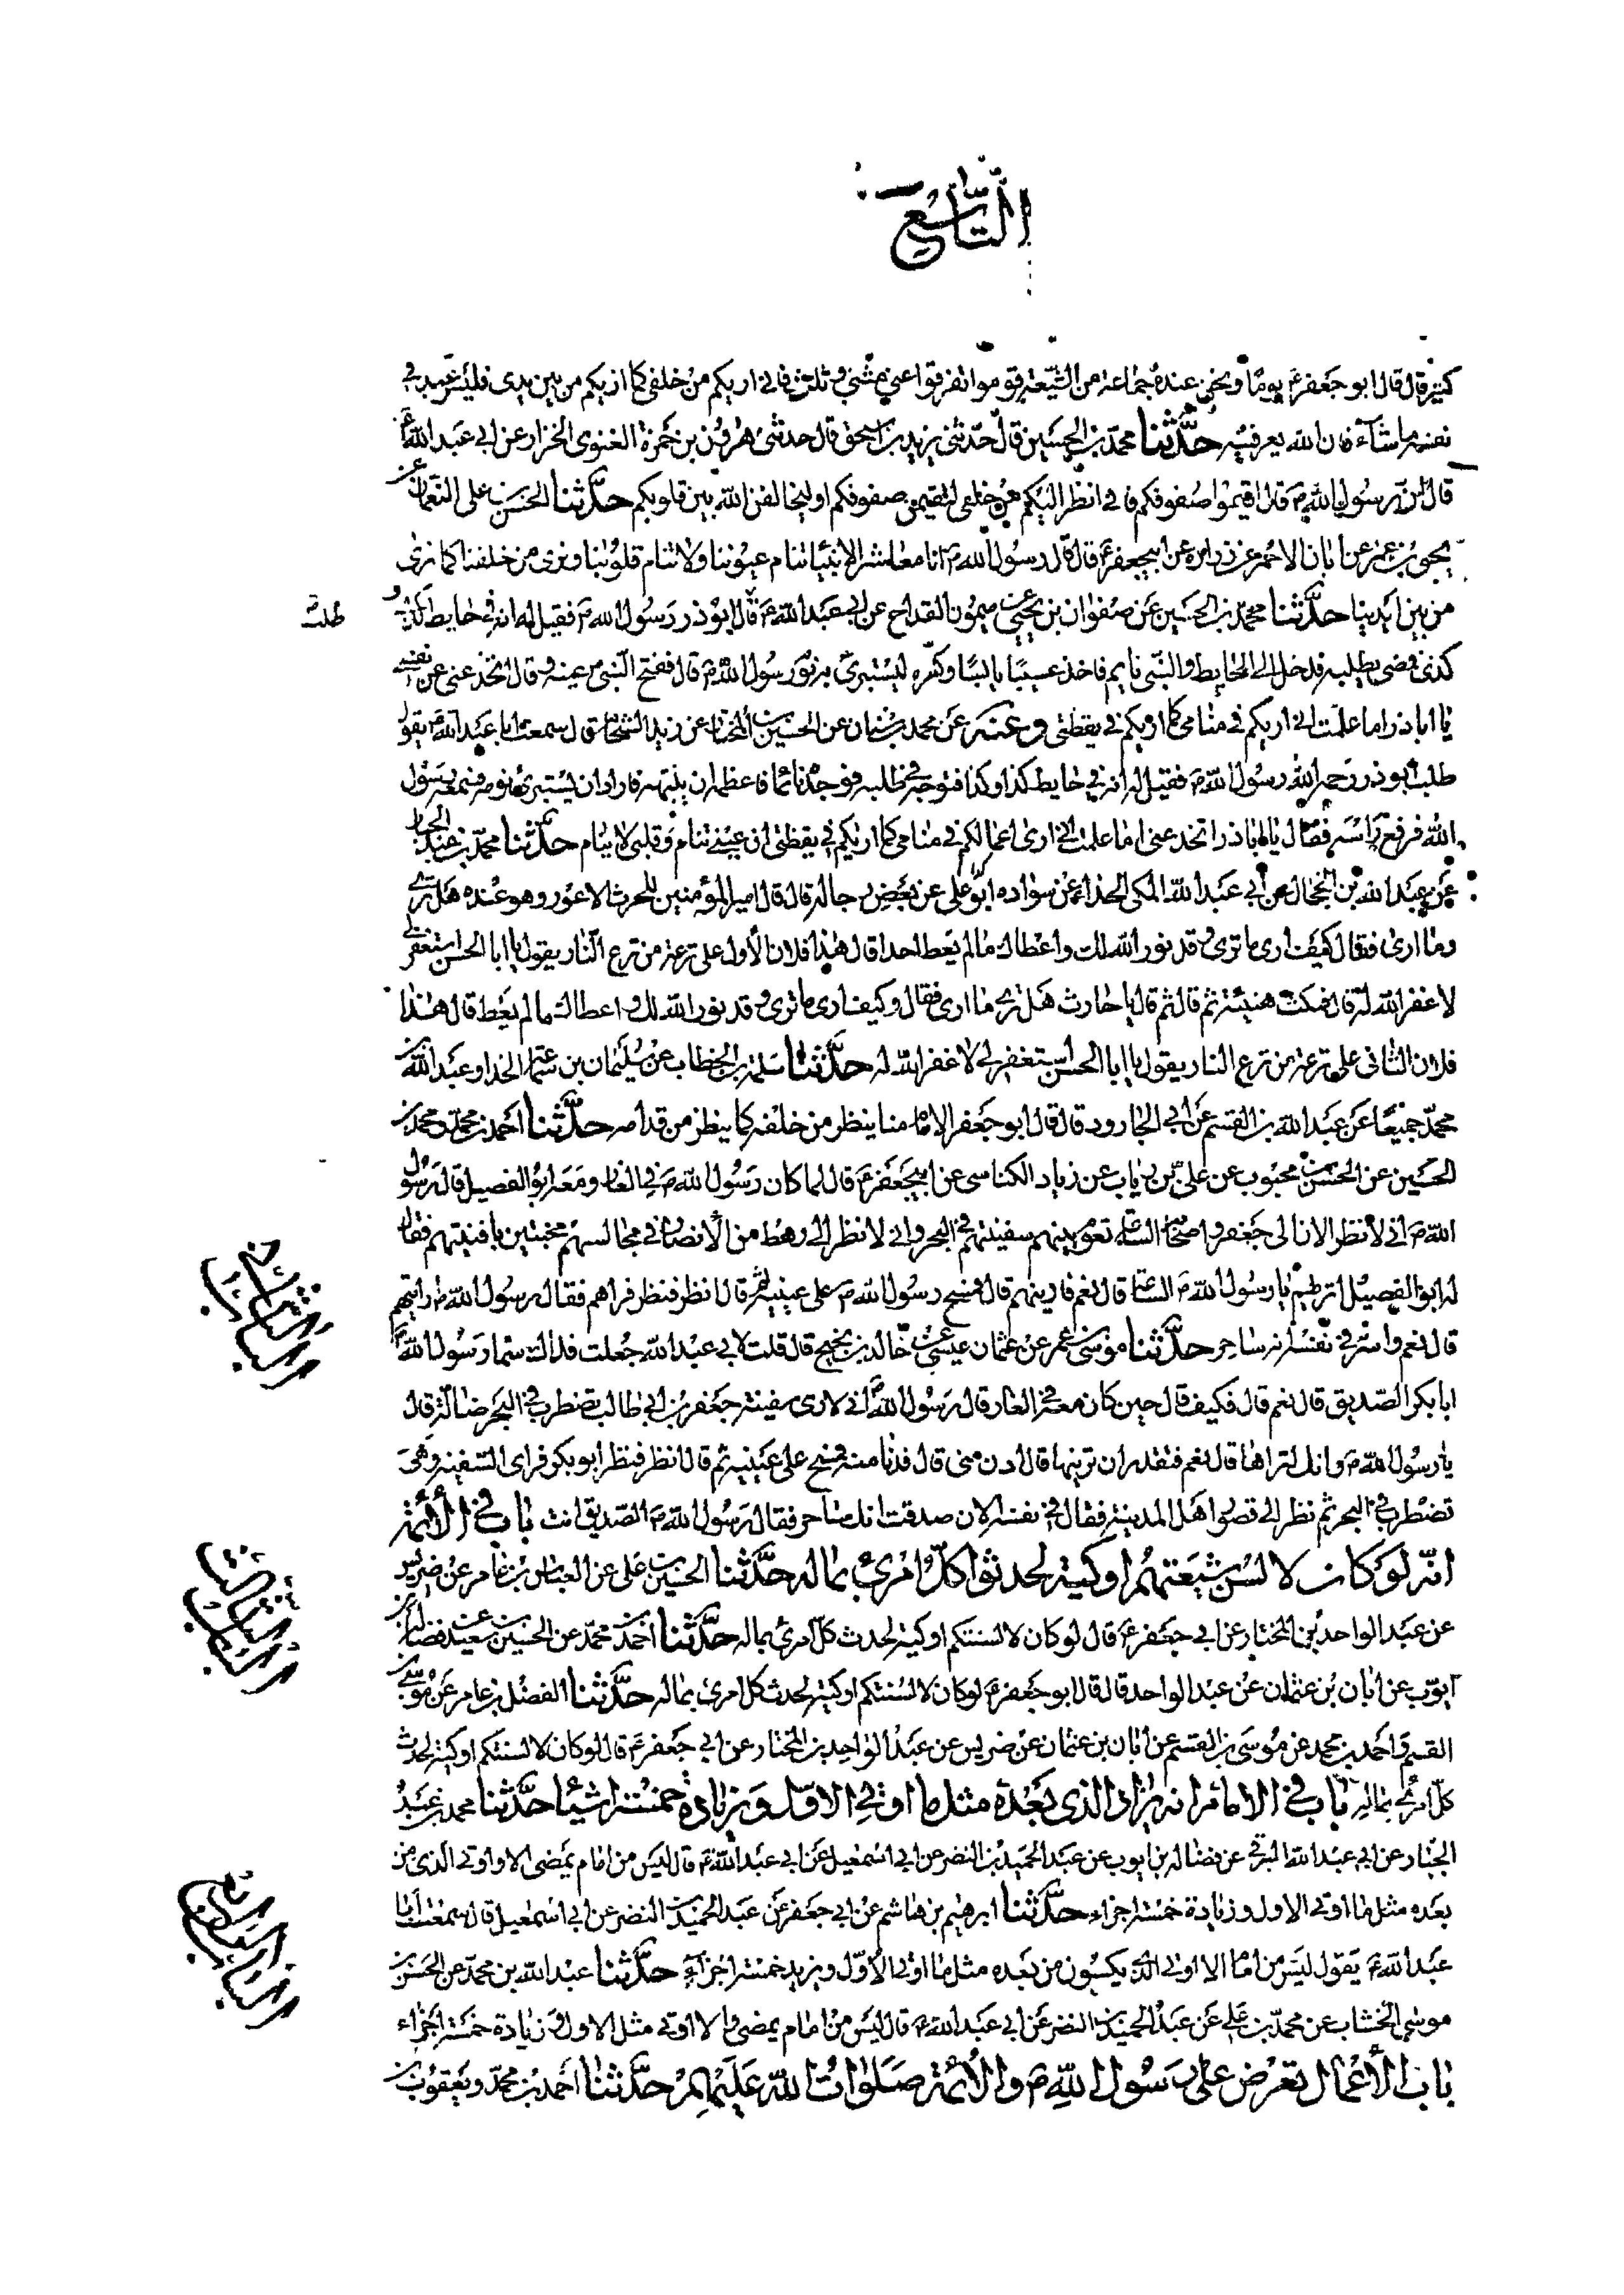 التاسع
كثير قال قال ابو جعفر ع يوما ونحن عنده جماعة من الشيعة قوموا تفرقوا عني مثنى وثلث فاني اريكم من خلفي كما اريكم من بين يدي فليسر عبد في
نفسه ما شاء فان الله يعرفنيه حدثنا محمد بن الحسين قال حدثني يزيد بن اسحق قال حدثني هرون بن حمزة الغنوي الخزاز عن ابي عبد الله ع
قال ان رسول الله ص قال اقيموا صفوفكم فاني انظر اليكم من خلفي لتقيمن صفوفكم او ليخالفن الله بين قلوبكم حدثنا الحسن بن علي النعمان عن
يحيى بن عمر عن ابان الاحمر عن زراره عن ابيجعفر ع قال قال رسول الله ص انا معاشر الانبياء تنام عيوننا ولا تنام قلوبنا ونرى من خلفنا كما نرى
من بين ايدينا حدثنا محمد بن الحسين عن صفوان بن يحيى عن ميمون القداح عن ابي عبد الله ع قال ابوذر رسول الله ص فقيل له انه في حايط كذا و
طلب
كذى فمضى يطلبه فدخل الى الحايط والنبي نايم فاخذ عسيبا يابسا وكسره ليستبرئ به نوم رسول الله ص قال ففتح النبي ص عينه وقال اتخدعني عن نفسي
يا اباذر اما علمت اني اريكم في منامي كما اريكم في يقظتي وعنه عن محمد بن سنان عن الحسين بن المختار عن زيد الشحام قال سمعت ابا عبد الله ع يقول
طلب ابوذر رحمه الله رسول الله ص فقيل له انه في حايط كذا وكذا فتوجه في طلبه فوجده نائما فاعظمه ان ينبهه فاراد ان يستبرئ نومه فسمعه رسول
الله فرفع راسه فقال يا اباذر اتخدعني اما علمت اني ارى اعمالكم في منامي كما اريكم في يقظتي ان عيني تنام وقلبي لا ينام حدثنا محمد بن عبد الجبار
عن عبد الله بن الحجال عن ابي عبد الله المكي الحذاء عن سواده ابو علي عن بعض رجاله قال قال امير المؤمنين للحرث الاعور وهو عنده هل ترى
وما ارى فقال كيف ارى ما ترى وقد نور الله لك واعطاك ما لم يعط احدا قال هذا فلان الاول على ترعة من ترع النار يقول يا ابا الحسن استغفر لي
لا غفر الله له قال فمكث هنيئة ثم قال ثم قال يا حارث هل ترى ما ارى فقال وكيف ارى ما ترى وقد نور الله لك واعطاك ما لم يعط قال هذا
فلان الثاني على ترعة من ترع النار يقول يا ابا الحسن استغفر لي لا غفر الله له حدثنا سلمة بن الخطاب عن سليمان بن سماعة الحذا وعبد الله بن
محمد جميعا عن عبد الله بن القسم عن ابي الجارود قال قال ابو جعفر الامام منا ينظر من خلفه كما ينظر من قدامه حدثنا احمد بن محمد ومحمد بن
الحسين عن الحسن بن محبوب عن علي بن رياب عن زياد الكناسي عن ابيجعفر ع قال لما كان رسول الله ص في الغار ومعه ابو الفصيل قال رسول
الله ص اني لانظر الان الى جعفر واصحابه الساعة تعوم بينهم سفينتهم في البحر واني لانظر الى رهط من الانصار في مجالسهم مخبتين بافنيتهم فقال
له ابو الفصيل اتريهم يا رسول الله ص الساعة قال نعم فارينهم قال فمسح رسول الله ص على عينيه ثم قال انظر فنظر فراهم فقال رسول الله ص رايتهم
قال نعم واسر في نفسه انه ساحر حدثنا موسى بن عمر عن عثمان عيسى عن خالد بن نجيح قال قلت لابي عبد الله جعلت فداك سما رسول الله ص
ابا بكر الصديق قال نعم قال فكيف قال حين كان معه في الغار قال رسول الله ص اني لارى سفينة جعفر بن ابي طالب تضطرب في البحر ضالة قال
يا رسول الله ص وانك لتراها قال نعم فتقدر ان ترينها قال ادن مني قال فدنا منه فمسح على عينيه ثم قال انظر فنظر ابو بكر فراى السفينة وهي
تضطرب في البحر ثم نظر الى قصور اهل المدينة فقال في نفسه الان صدقت انك ساحر فقال رسول الله ص الصديق انت باب في الأئمة
انه لو كان لالسن شيعتهم اوكية لحدثوا كل امرئ بما له حدثنا الحسين بن علي عن العباس بن عامر عن ضريس
عن عبد الواحد بن المختار عن ابي جعفر ع قال لو كان لالسنتكم اوكية لحدث كل امرئ بما له حدثنا احمد بن محمد عن الحسين بن سعيد عن فضالة بن
ايوب عن ابان بن عثمان عن عبد الواحد قال قال ابو جعفر ع لو كان لالسنتكم اوكية لحدث كل امرئ بما له حدثنا الفضل بن عامر عن موسى بن
القسم واحمد بن محمد عن موسى بن القسم عن ابان بن عثمان عن ضريس عن عبد الواحد بن المختار عن ابي جعفر ع قال لو كان لالسنتكم اوكية لحدث
كل امرئ بما له باب في الامام انه يزاد الذي بعده مثل ما اوتي الاول وزيادة خمسة اشياء حدثنا محمد بن عبد
الجبار عن ابي عبد الله البرقي عن فضاله بن ايوب عن عبد الحميد بن النضر عن ابي اسمعيل عن ابي عبد الله ع قال ليس من امام يمضى الا واوتي الذي من
بعده مثل ما اوتي الاول وزيادة خمسة اجزاء حدثنا ابرهيم بن هاشم عن ابي جعفر عن عبد الحميد بن النضر عن ابي اسمعيل قال سمعت ابا
عبد الله ع يقول ليس من امام الا اوتي الذي يكون من بعده مثل ما اوتي الاول ويزيد خمسة اجزاء حدثنا عبد الله بن محمد عن الحسن بن
موسى الخشاب عن محمد بن علي عن عبد الحميد بن النضر عن ابي عبد الله ع قال ليس من امام يمضى الا اوتي مثل الاول وزيادة خمسة اجزاء
باب الأعمال تعرض على رسول الله ص والأئمة صلوات الله عليهم حدثنا احمد بن محمد ويعقوب بن
الباب الثاني
الباب الثالث
الباب الرابع